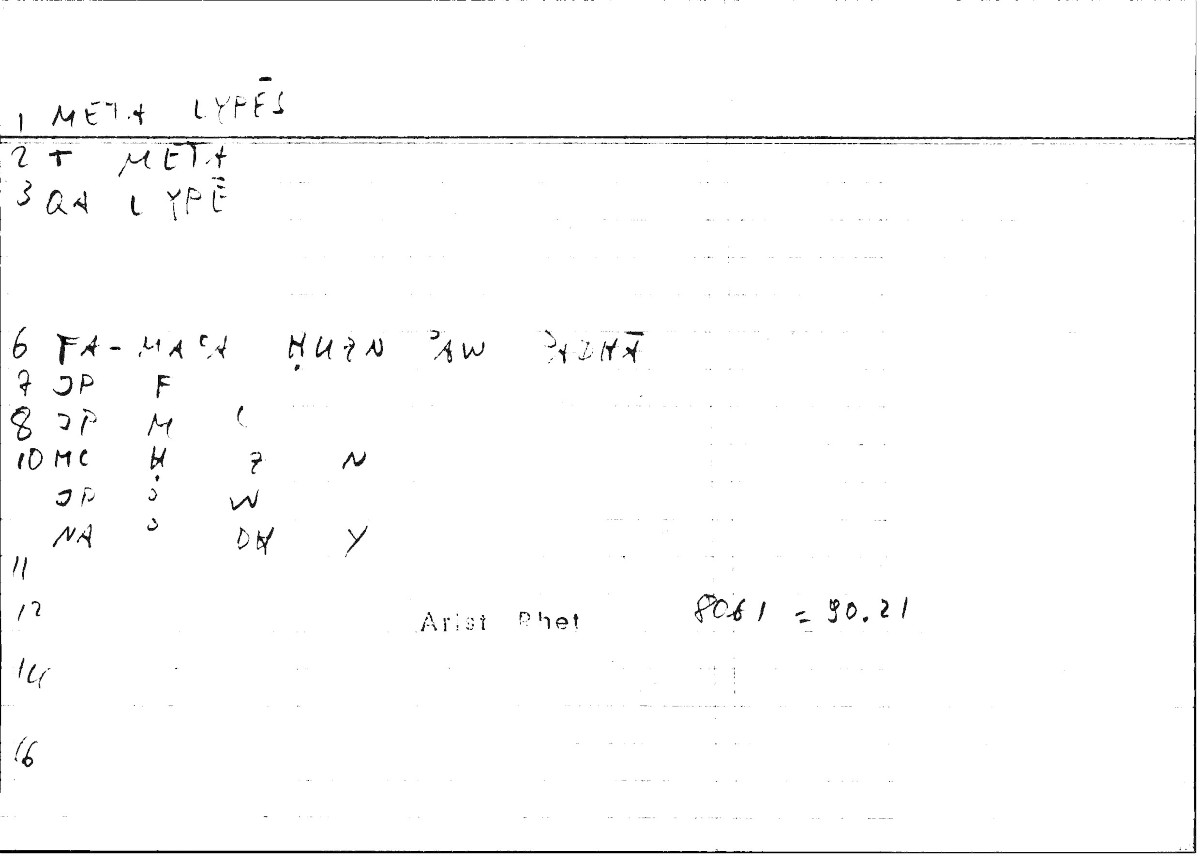 1 META LYPĒS
2 T META
3 QA LYPĒ
6 FA-MAʿA ḤUZN ʾAW ʾADHĀ
7 JP F
8 JP M ʿ
10 MC Ḥ Z N
JP ʾ W
NA ʾ DH Y
11
12 Arist Rhet 8061 = 90.21
14
16